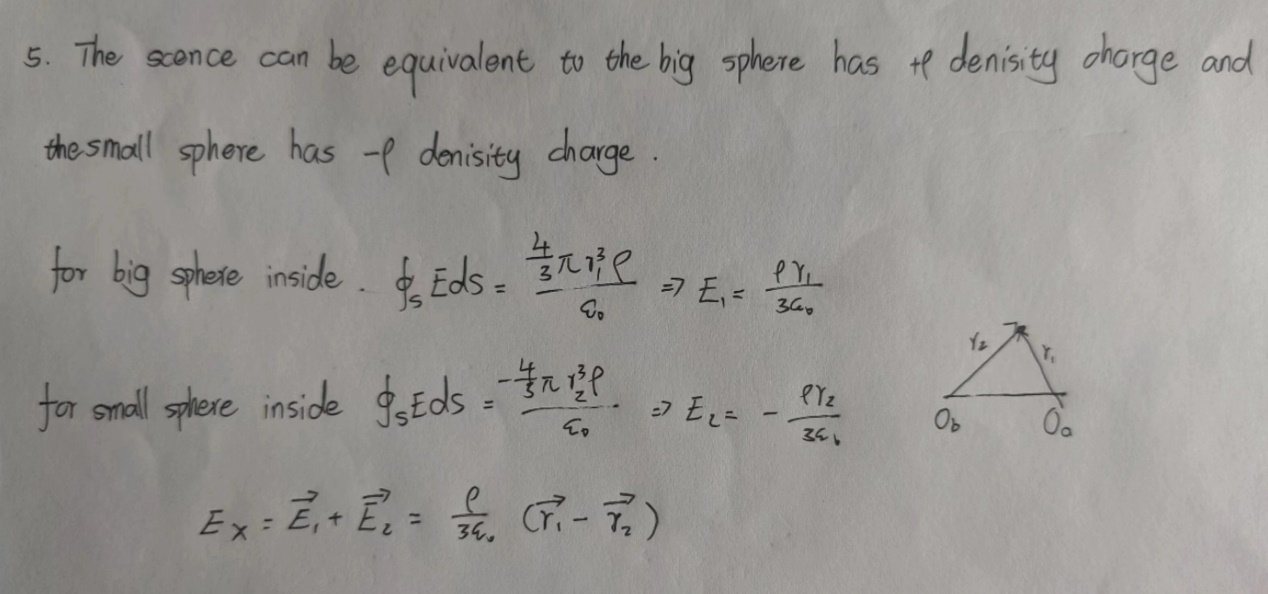 5. The scence can be equivalent to the big sphere has +ρ denisity charge and
the small sphere has -ρ denisity charge.
for big sphere inside. ∮_S Eds = \frac{\frac{4}{3}πr_1^3ρ}{ε_0} ⇒ E_1 = \frac{ρr_1}{3ε_0}
for small sphere inside ∮_S Eds = \frac{-\frac{4}{3}πr_2^3ρ}{ε_0} ⇒ E_2 = -\frac{ρr_2}{3ε_0}
r_2 r_1
O_b O_a
E_x = \vec{E_1} + \vec{E_2} = \frac{ρ}{3ε_0} (\vec{r_1} - \vec{r_2})